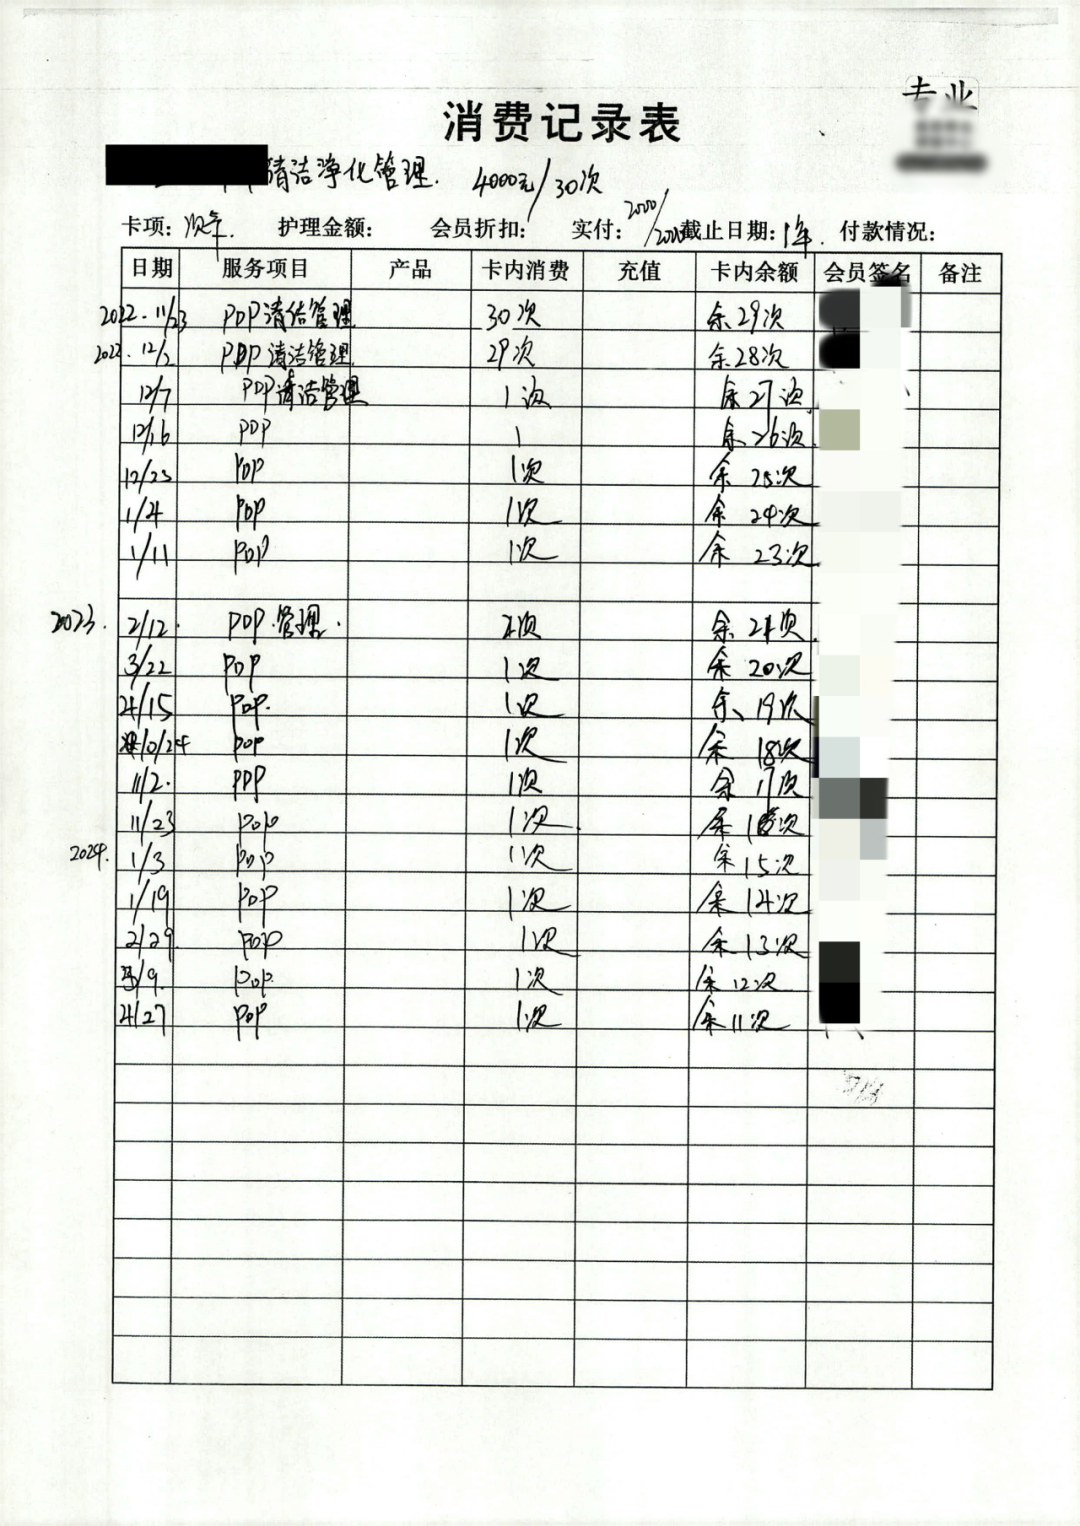 专业
消费记录表
清洁净化管理. 4000元/30次
卡项: 护理金额: 会员折扣: 实付: 2000/2000 截止日期: 1年. 付款情况:
日期 服务项目 产品 卡内消费 充值 卡内余额 会员签名 备注
2022.11/23 PDP清洁管理 30次 余29次
2022.12/2 PDP清洁管理 29次 余28次
12/7 PDP清洁管理 1次 余27次
12/16 PDP 1 余26次
12/23 PDP 1次 余25次
1/4 PDP 1次 余24次
1/11 PDP 1次 余23次
2023. 2/12. PDP.管理. 2次 余21次
3/22 PDP 1次 余20次
4/15 PDP. 1次 余19次
10/24 PDP 1次 余18次
11/2. PDP 1次 余17次
11/23 PDP 1次 余16次
2024. 1/3 PDP 1次 余15次
1/19 PDP 1次 余14次
2/29 PDP 1次 余13次
3/9. PDP. 1次 余12次
4/27 PDP 1次 余11次